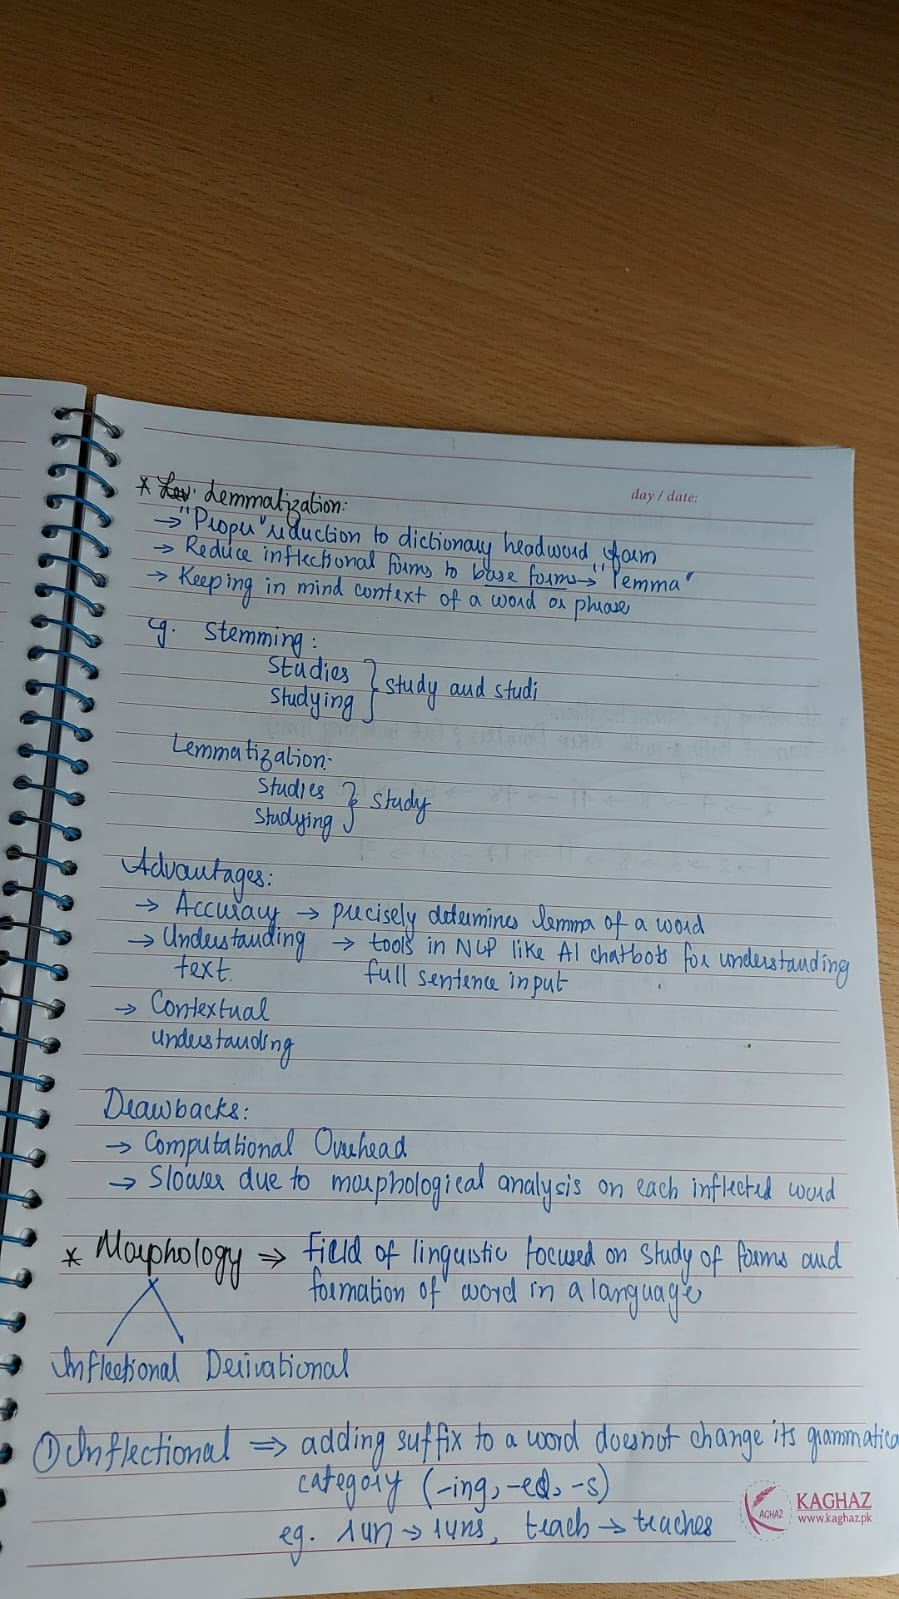 day / date:
* Lemmatization:
→ "Proper" reduction to dictionary headword form
→ Reduce inflectional forms to base forms → "lemma"
→ Keeping in mind context of a word or phrase
eg. Stemming:
Studies
Studying } study and studi
Lemmatization:
Studies
Studying } study
Advantages:
→ Accuracy → precisely determines lemma of a word
→ Understanding → tools in NLP like AI chatbots for understanding
text. full sentence input
→ Contextual
understanding
Drawbacks:
→ Computational Overhead
→ Slower due to morphological analysis on each inflected word
* Morphology ⇒ field of linguistic focused on study of forms and
formation of word in a language
Inflectional Derivational
① Inflectional ⇒ adding suffix to a word doesnot change its grammatica
category (-ing, -ed, -s)
eg. run → runs, teach → teaches
KAGHAZ
KAGHAZ
www.kaghaz.pk